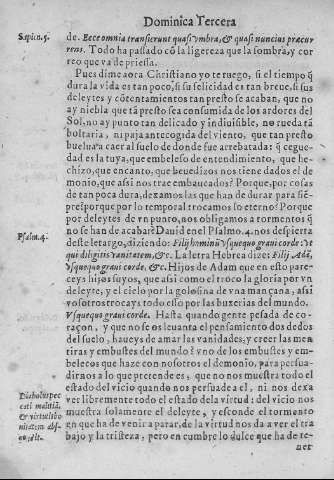 Dominica Tercera
Sapien.5.
de. Ecce omnia transierunt quasi vmbra, & quasi nuncius præcur
rens. Todo ha passado cõ la ligereza que la sombra, y cor
reo que va de priessa.
Pues dime aora Christiano yo te ruego, si el tiempo q̃
dura la vida es tan poco, si su felicidad es tan breue, si sus
deleytes y cõtentamientos tan presto se acaban, que no
ay niebla que tã presto sea consumida de los ardores del
Sol, no ay punto tan delicado y indiuisible, no rueda tã
boltaria, ni paja antecogida del viento, que tan presto
buelua a caer al suelo de donde fue arrebatada: q̃ cegue-
dad es la tuya, que embeleso de entendimiento, que he-
chizo, que encanto, que beuedizos nos tiene dados el de
monio, que assi nos trae embaucados? Porque, por cosas
de tan poca dura, dexamos las que han de durar para siẽ-
pres porque por lo temporal trocamos lo eterno? Porque
por deleytes de vn punto, nos obligamos a tormentos q̃
no se han de acabar è Dauid en el Psalmo. 4. nos despierta
Psalm.4.
deste letargo, diziendo: Filij hominũ vsquequo graui corde: vt
quid diligitis vanitatem, &c. La letra Hebrea dize: Filij Adã,
vsquequo graui corde. &c. Hijos de Adam que en esto pare-
ceys hijos suyos, que assi como el troco la gloria por vn
deleyte, y el cielo por la golosina de vna mançana, assi
vosotros trocays todo esso por las buxerias del mundo.
Vsquequo graui corde. Hasta quando gente pesada de co-
raçon, y que no se os leuanta el pensamiento dos dedos
del suelo, haueys de amar las vanidades, y creer las men
tiras y embustes del mundo? vno de los embustes y em-
belecos que haze con nosotros el demonio, para persua-
dirnos a lo que pretende es, que no nos muestra todo el
estado del vicio quando nos persuade a el, ni nos dexa
Diabolus pec
cati malitiã,
& virtutis bo
nitatem abs-
condit.
ver libremente todo el estado dela virtud: del vicio nos
muestra solamente el deleyte, y esconde el tormento
q̃n que ha de venir a parar, de la virtud nos da a ver el tra
bajo y la tristeza, pero en cumbre lo dulce que ha de te-
ner